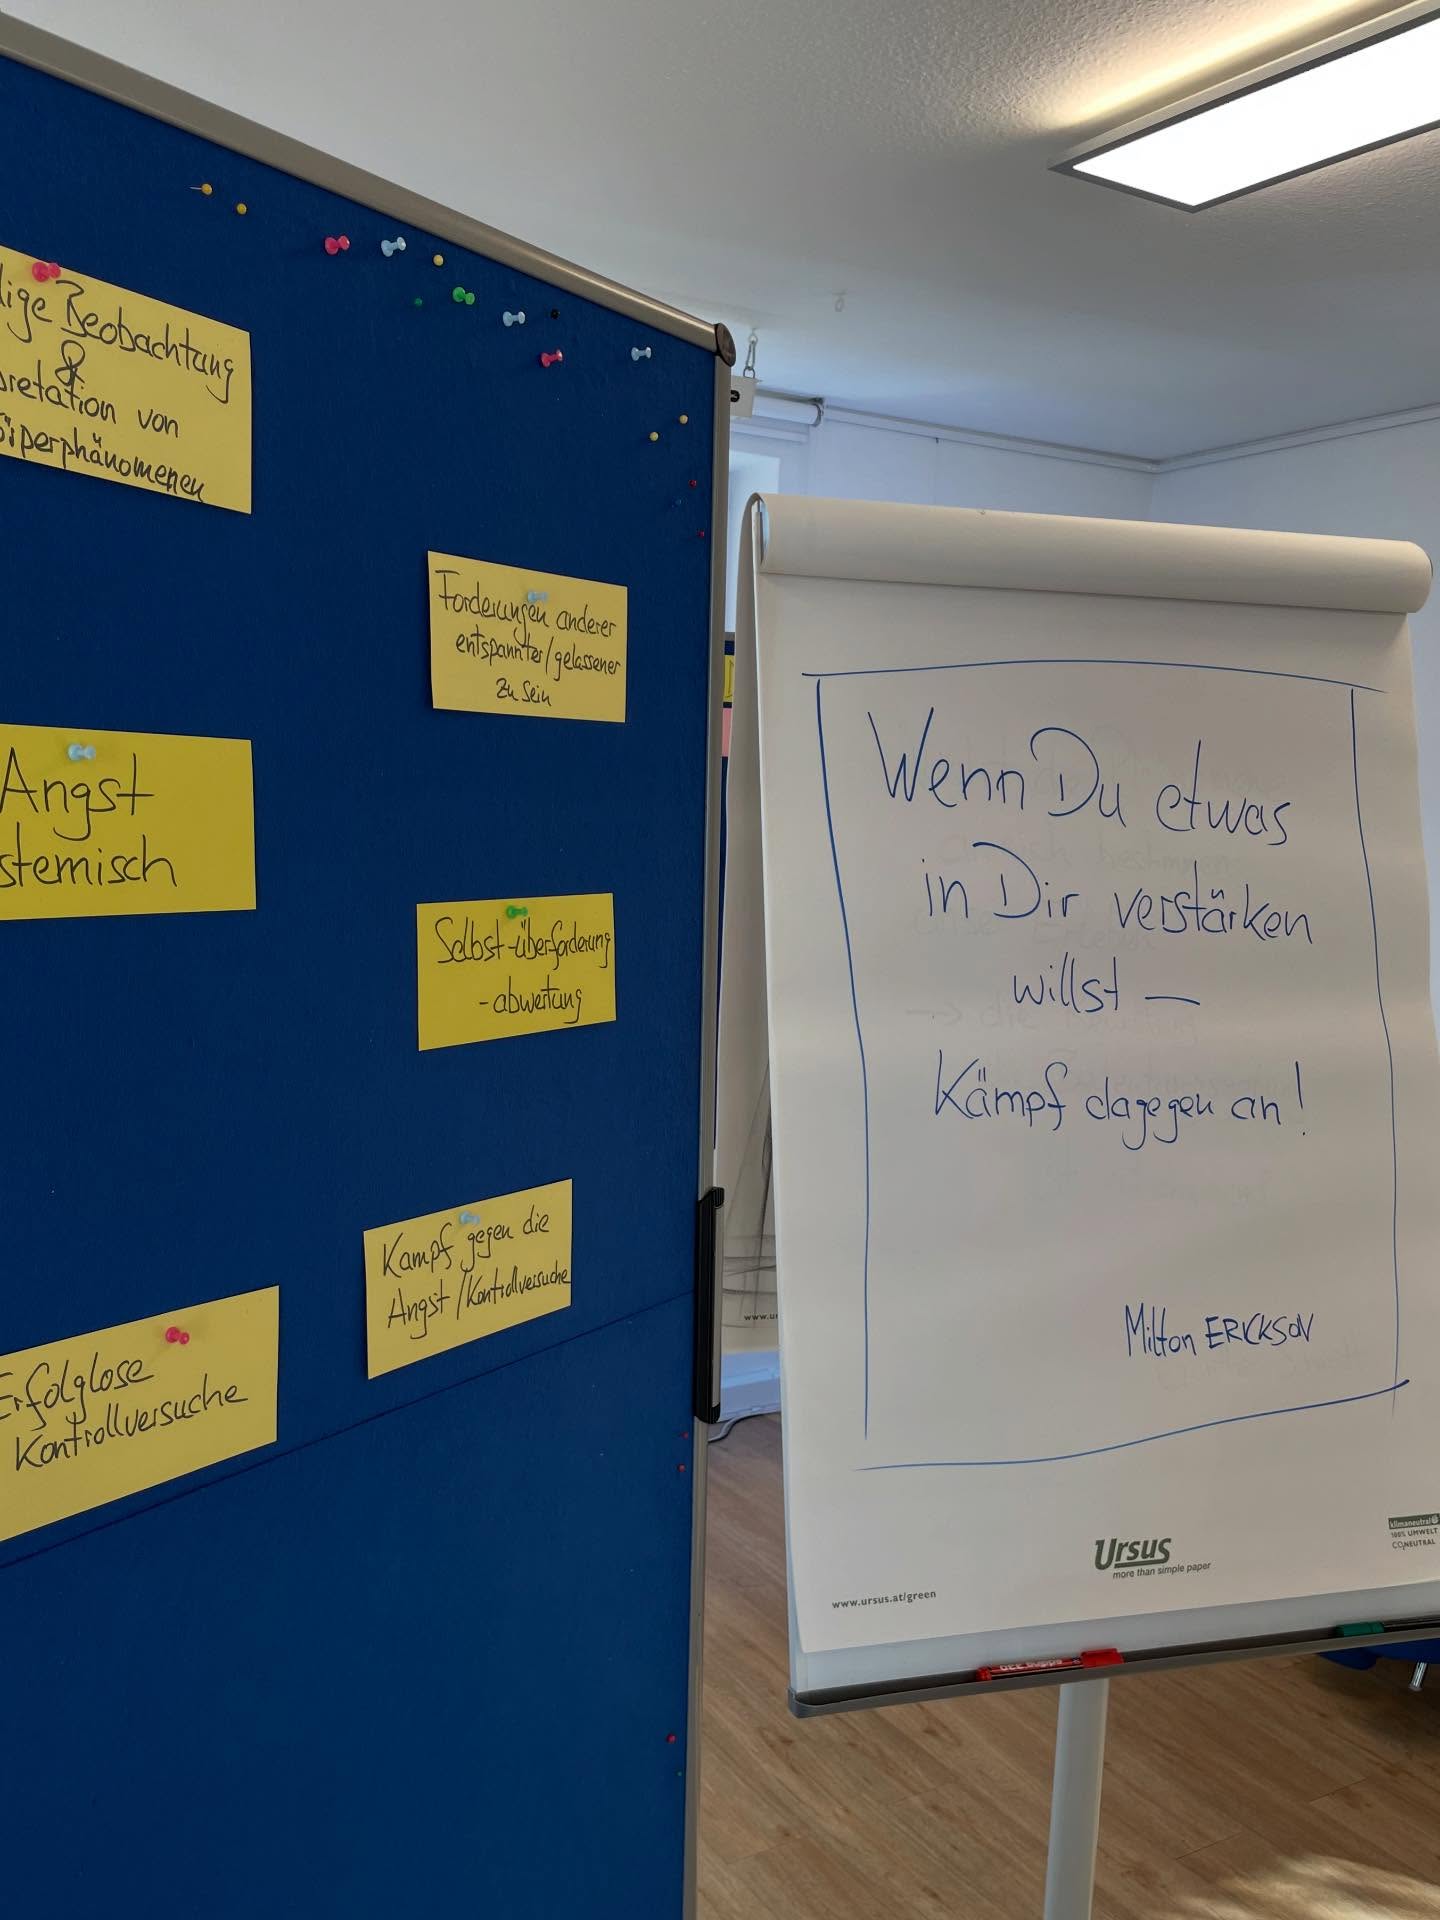 Beobachtung
&
von
Angst
Erfolglose
Kontrollversuche
Forderungen anderer
entspannter/gelassener
zu sein
Selbst-überforderung
-abwertung
Kampf gegen die
Angst/Kontrollversuche
Wenn Du etwas
in Dir verstärken
willst —
Kämpf dagegen an!
Milton ERICKSON
Ursus
more than simple paper
www.ursus.at/green
klimaneutral
100% UMWELT
CO2NEUTRAL